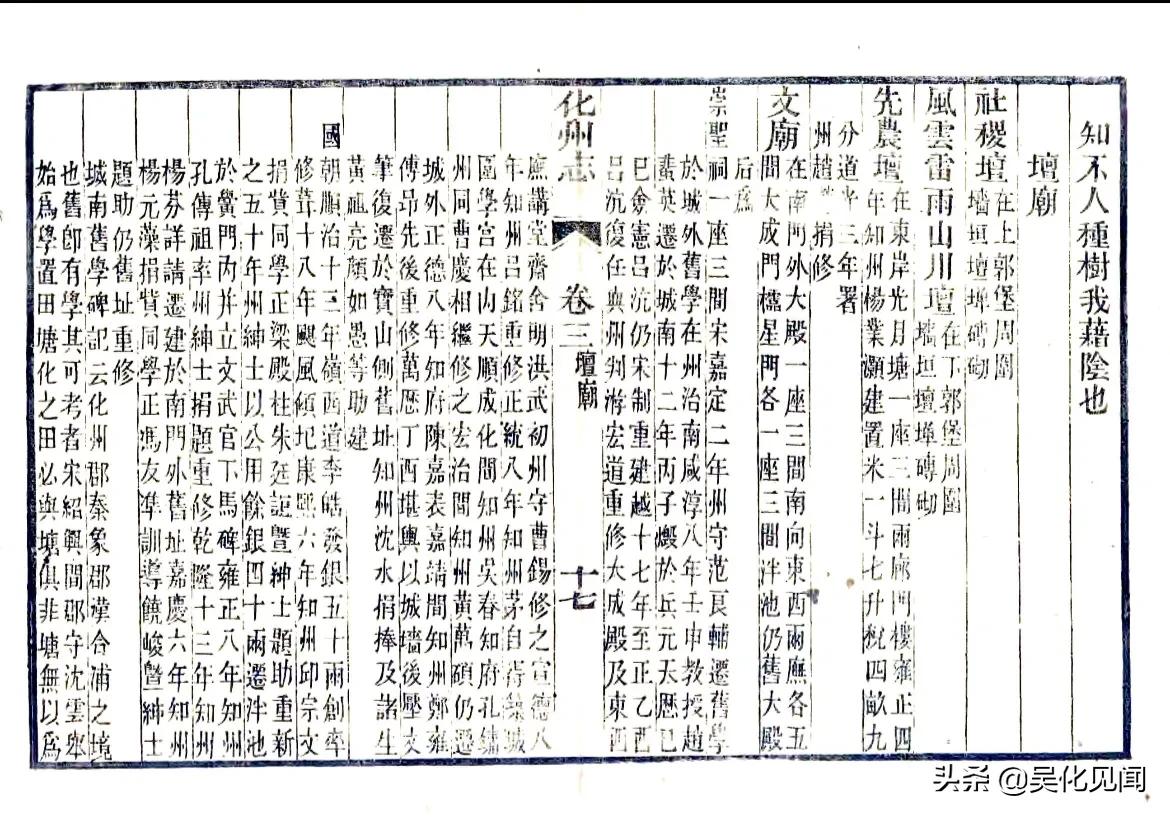 知不人種樹我藉陰也
壇廟
社稷壇在上郭堡周圍
墻垣壇埤磚砌
風雲雷雨山川壇在下郭堡周圍
墻垣壇埤磚砌
先農壇在東岸光月塘一座三間兩廊門樓雍正四
年知州楊業灝建置米一斗七升稅四畝九
分道光三年署
州趙 捐修
文廟在南門外大殿一座三間南向東西兩廡各五
間大成門櫺星門各一座三間泮池仍舊大殿
后為
崇聖祠一座三間宋嘉定二年州守范良輔遷舊學
於城外舊學在州治南咸淳八年壬申教授趙
蜚英遷於城南十二年丙子燬於兵元天歷己
巳僉憲呂沆仍宋制重建越十七年至正乙酉
呂沆復任與州判游宏道重修大成殿及東西
化州志 卷三 壇廟 十七
廡講堂齋舍明洪武初州守曹錫修之宣德八
年知州呂銘重修正統八年知州茅自得築城
區學宮在內天順成化間知州吳春知府孔鏞
州同曹慶相繼修之宏治間知州黃萬碩仍遷
城外正德八年知府陳嘉表嘉靖間知州鄭雍
傅昂先後重修萬歷丁酉堪輿以城墻後壓文
筆復遷於寶山側舊址知州沈水捐捧及諸生
黃祖亮顏如愚等助建
國朝順治十三年嶺西道李皓發銀五十兩創率
修葺十八年颶風傾圮康熙六年知州邱宗文
捐貲同學正梁殿柱朱廷誼暨紳士題助重新
之五十年州紳士以公用餘銀四十兩遷泮池
於黌門內并立文武官下馬碑雍正八年知州
孔傳祖率州紳士捐題重修乾隆十三年知州
楊芬詳請遷建於南門外舊址嘉慶六年知州
楊元藻捐貲同學正馮友準訓導饒峻暨紳士
題助仍舊址重修
城南舊學碑記云化州郡秦象郡漢合浦之境
也舊卽有學其可考者宋紹興間郡守沈雲舉
始爲學置田塘化之田必與塘俱非塘無以爲
头条 @吴化见闻